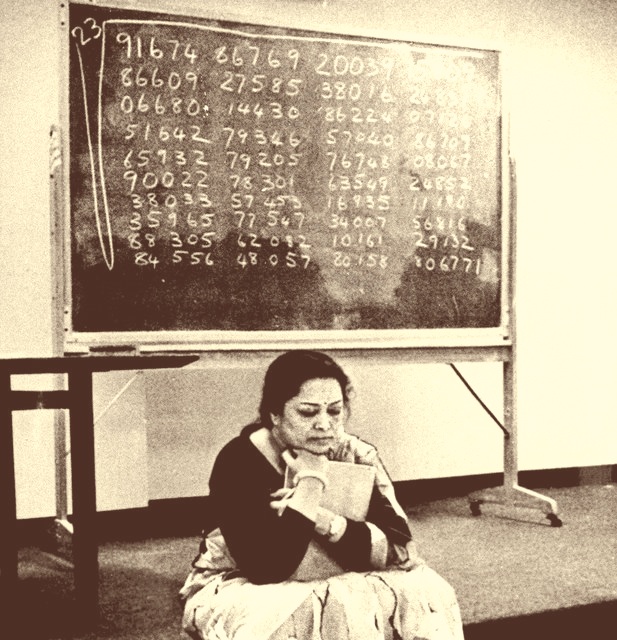 23
91674 86769 20039
86609 27585 38016
06680 14430 86224
51642 79346 57040 86709
65932 79205 76748 08067
90022 78301 63549 24852
38033 57453 16935 11190
35965 77547 34007 56816
88305 62082 10161 29132
84556 48057 80158 806771